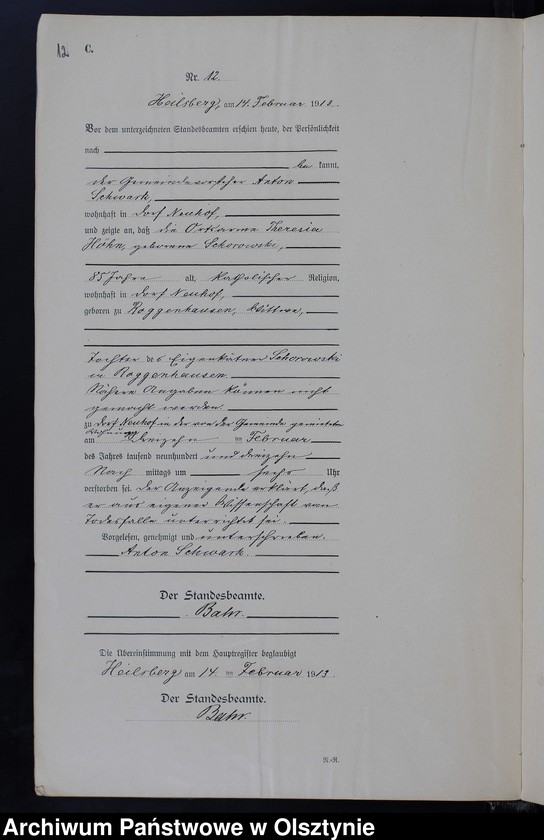 12. C.
Nr. 12.
Heilsberg, am 14. Februar 1913.
Vor dem unterzeichneten Standesbeamten erschien heute, der Persönlichkeit
nach
be kannt,
der Gemeindevorsteher Anton
Schwark,
wohnhaft in Dorf Neuhof,
und zeigte an, daß die Ortsarme Theresia
Höhn, geborene Schorowski,
85 Jahre alt, katholischer Religion,
wohnhaft in Dorf Neuhof,
geboren zu Roggenhausen, Wittwe,
Tochter des Eigenkätner Schorowski
in Roggenhausen.
Nähere Angaben können nicht
gemacht werden.
zu Dorf Neuhof in der von der Gemeinde gemieteten
Wohnung
am dreizehn ten Februar
des Jahres tausend neunhundert und dreizehn
Nach mittags um sechs Uhr
verstorben sei. Der Anzeigende erklärt, daß
er aus eigener Wissenschaft vom
Todesfalle unterrichtet sei.
Vorgelesen, genehmigt und unterschrieben.
Anton Schwark.
Der Standesbeamte.
Bahr.
Die Übereinstimmung mit dem Hauptregister beglaubigt
Heilsberg am 14. ten Februar 1913.
Der Standesbeamte.
Bahr.
N.-R.
Archiwum Państwowe w Olsztynie